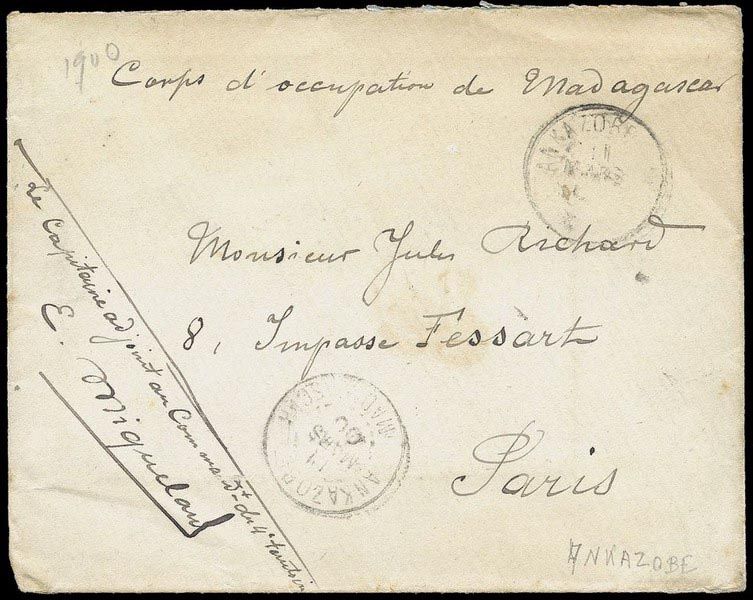 1900
Corps d'occupation de Madagascar
ANKAZOBE
11
MARS
Monsieur Jules Richard
8, Impasse Fessart
Paris
Le Capitaine adjoint au Comma dt du 4e territoire
E. Miquelard
MADAGASCAR
11
MARS
00
ANKAZOBE
ANKAZOBE